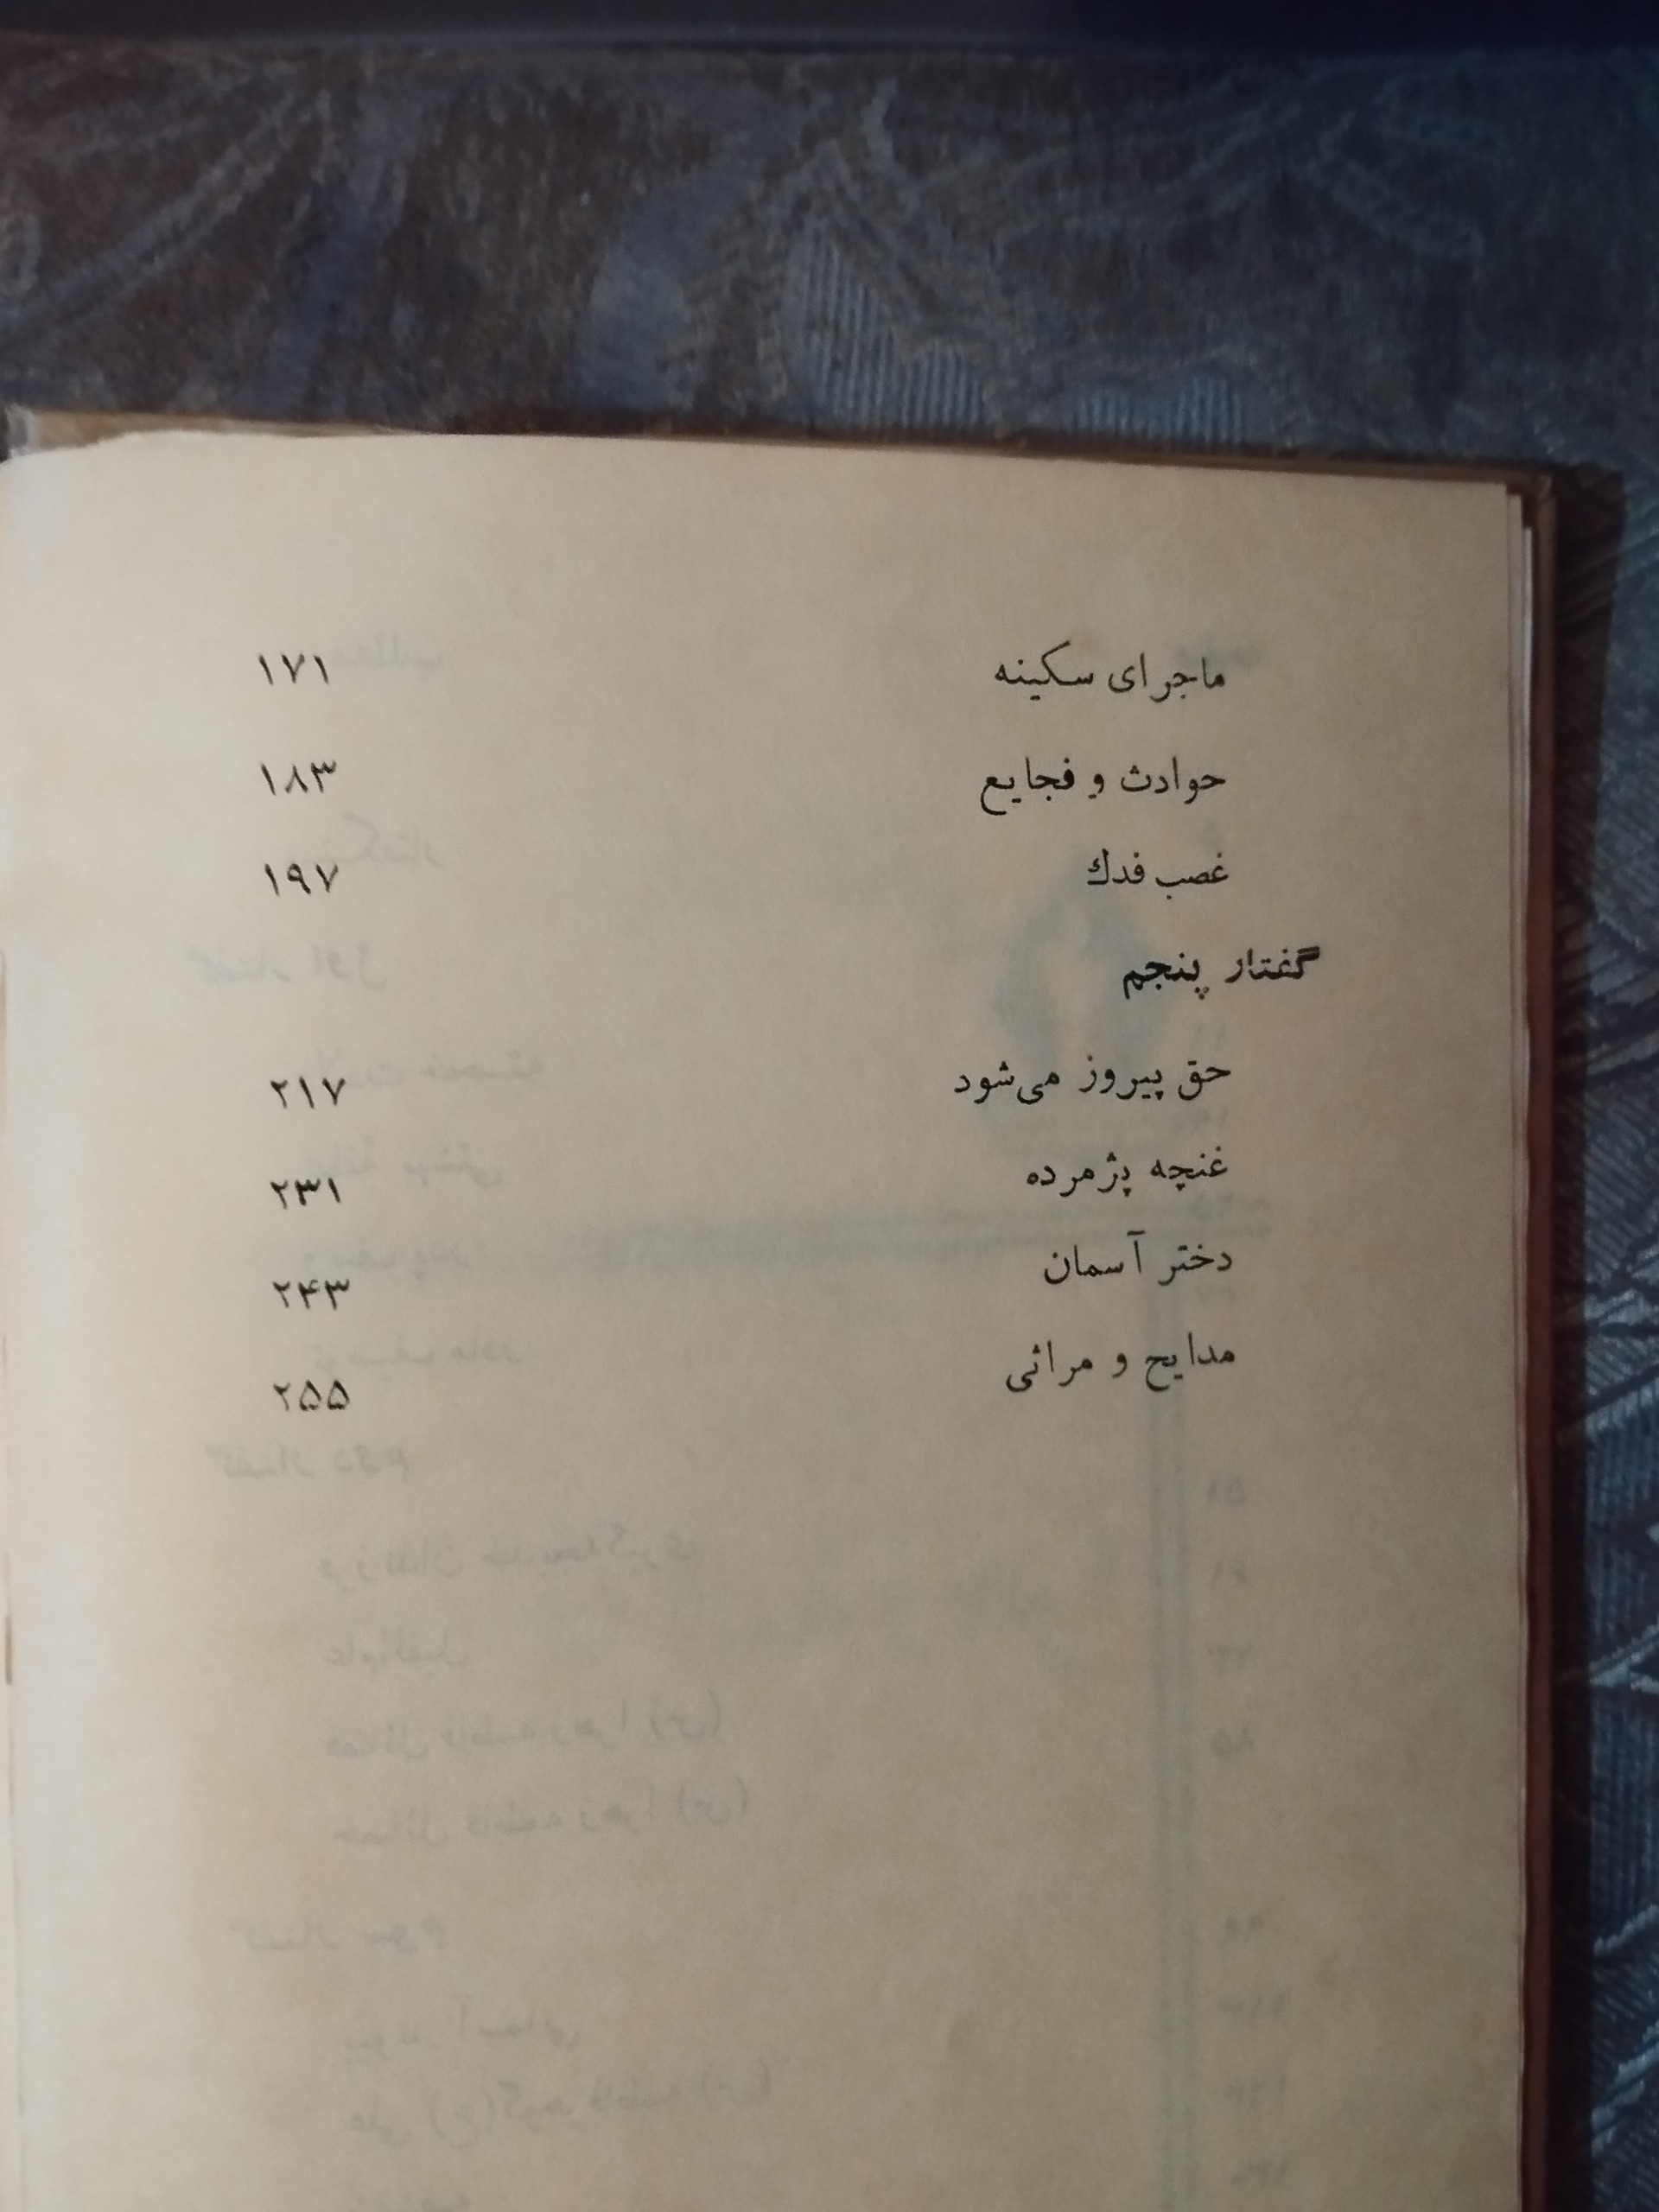 ماجرای سکینه ۱۷۱
حوادث و فجایع ۱۸۳
غصب فدك ۱۹۷
گفتار پنجم
حق پیروز می‌شود ۲۱۷
غنچه پژمرده ۲۳۱
دختر آسمان ۲۴۳
مدایح و مراثی ۲۵۵